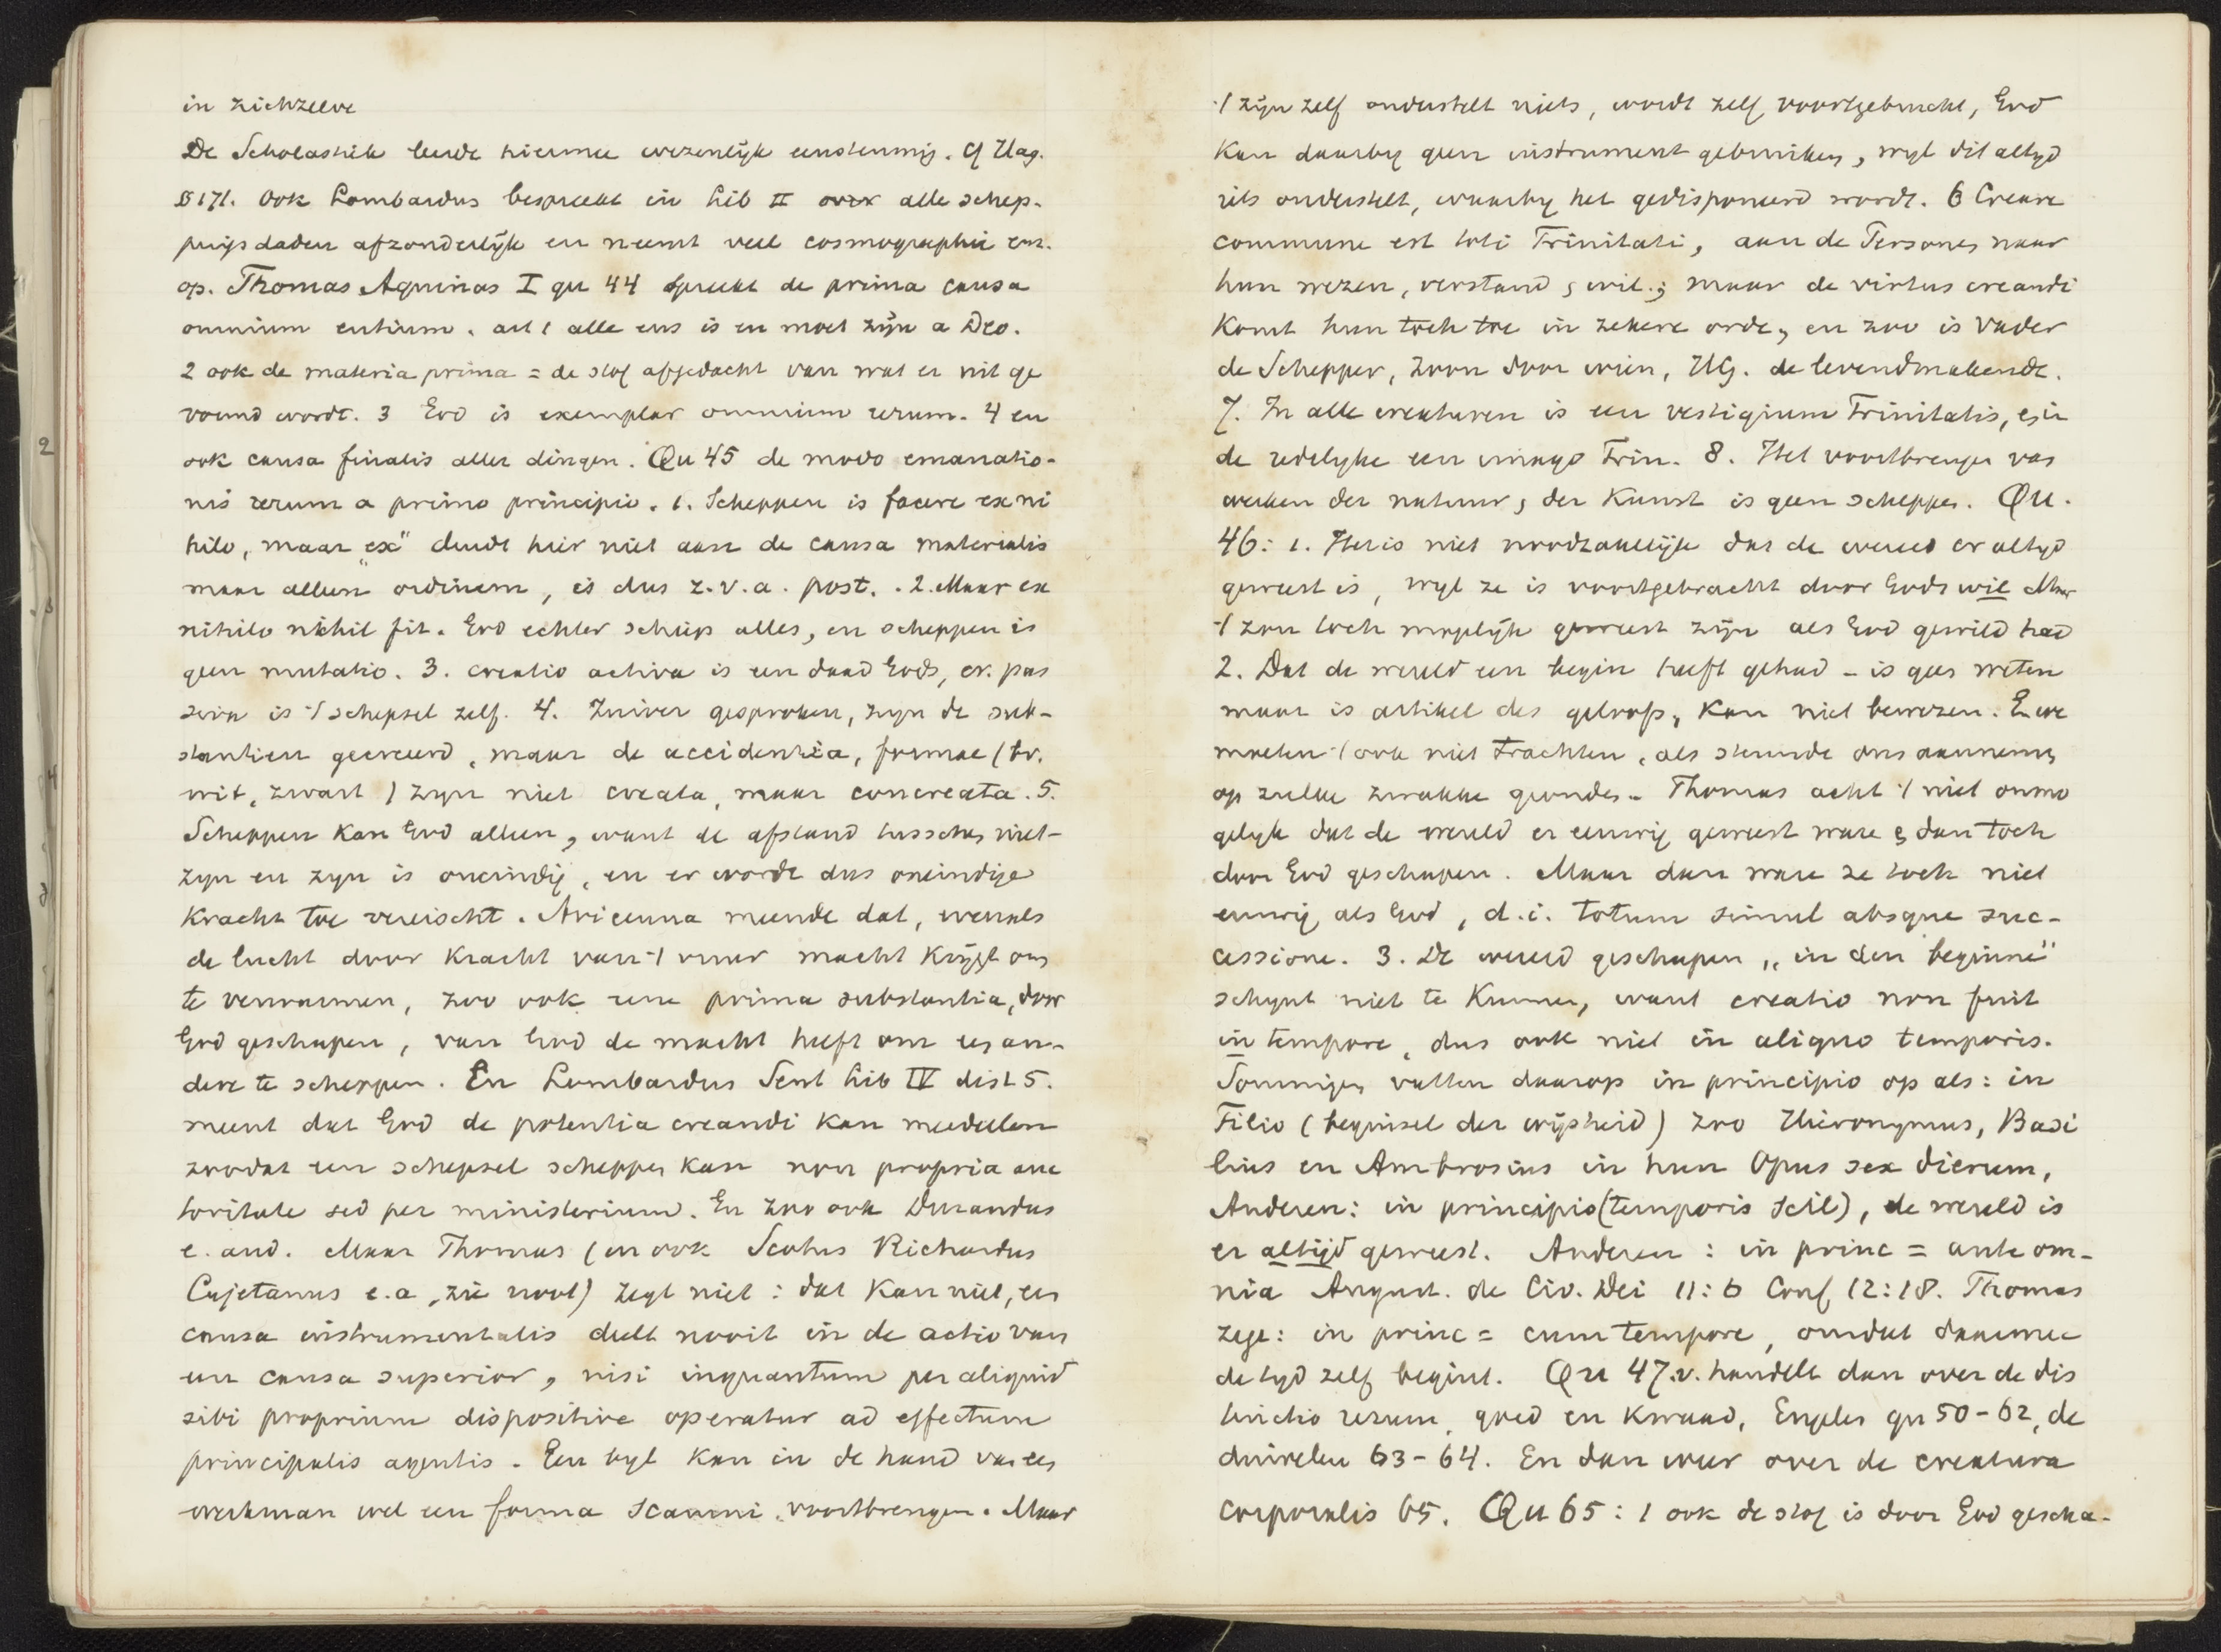 in zichzelve
De Scholastiek leerde hiermee wezenlijk eenstemmig. Cf Hag.
§ 171. Ook Lombardus bespreekt in Lib II over alle schep-
pingsdaden afzonderlijk en neemt veel cosmographie enz.
op. Thomas Aquinas I qu 44 spreekt de prima causa
omnium entium. art 1 alle ens is en moet zijn a Deo.
2 ook de materia prima = de stof afgedacht van wat er uit ge
vormd wordt. 3 God is exemplar omnium rerum. 4 en
ook causa finalis aller dingen. Qu 45 de modo emanatio-
nis rerum a primo principio. 1. Scheppen is facere ex ni
hilo, maar „ex" duidt hier niet aan de causa materialis
maar alleen ordinem, is dus z.v.a. post. . 2. Maar ex
nihilo nihil fit. God echter schiep alles, en scheppen is
geen mutatio. 3. creatio activa is een daad Gods, cr. pas
siva is 't schepsel zelf. 4. Zuiver gesproken, zijn de sub-
stantien gecreeerd, maar de accidentia, formae (bv.
wit, zwart) zijn niet creata, maar concreata. 5.
Scheppen kan God alleen, want de afstand tusschen niet-
zijn en zijn is oneindig, en er wordt dus oneindige
kracht toe vereischt. Avicenna meende dat, evenals
de lucht door kracht van 't vuur macht krijgt om
te verwarmen, zoo ook eene prima substantia, door
God geschapen, van God de macht heeft om een an-
dere te scheppen. En Lombardus Sent Lib IV dist 5.
meent dat God de potentia creandi kan meedeelen
zoodat een schepsel scheppen kan non propria auc
toritate sed per ministerium. En zoo ook Durandus
e. and. Maar Thomas (en ook Scotus Richardus
Cajetanus e.a, zie noot) zegt niet: dat kan niet, een
causa instrumentalis deelt nooit in de actio van
een causa superior, nisi inquantum per aliquid
sibi proprium dispositive operatur ad effectum
principalis agentis. Een bijl kan in de hand van een
werkman wel een forma scamni voortbrengen. Maar
't zijn zelf onderstelt niets, wordt zelf voortgebracht, God
kan daarbij geen instrument gebruiken, wijl dit altijd
iets onderstelt, waarbij het gedisponeerd wordt. 6 Creare
commune est toti Trinitati, aan de Personen naar
hun wezen, verstand, wil.; maar de virtus creandi
komt hun toch toe in zekere orde, en zoo is Vader
de Schepper, Zoon door wien, HG. de levendmakende.
7. In alle creaturen is een vestigium Trinitatis, en in
de redelijke een imago Trin. 8. Het voortbrengen van
werken der natuur, der kunst is geen scheppen. Qu.
46: 1. Het is niet noodzakelijk dat de wereld er altijd
geweest is, wijl ze is voortgebracht door Gods wil Maar
't zou toch mogelijk geweest zijn als God gewild had
2. Dat de wereld een begin heeft gehad - is geen weten
maar is artikel des geloofs, kan niet bewezen. En we
moeten 't ook niet trachten, als steunde ons aannemen
op zulke zwakke gronden. Thomas acht 't niet onmo
gelijk dat de wereld er eeuwig geweest ware en dan toch
door God geschapen. Maar dan ware ze toch niet
eeuwig als God, d.i. totum simul absque suc-
cessione. 3. De wereld geschapen „in den beginne"
schijnt niet te kunnen, want creatio non fuit
in tempore, dus ook niet in aliquo temporis.
Sommigen vatten daarop in principio op als: in
Filio (beginsel der wijsheid) zoo Hieronymus, Basi
lius en Ambrosius in hun Opus sex dierum,
Anderen: in principio (temporis scil), de wereld is
er altijd geweest. Anderen: in princ = ante om-
nia August. de Civ. Dei 11:6 Conf 12:18. Thomas
zegt: in princ = cum tempore, omdat daarmee
de tijd zelf begint. Qu 47.v. handelt dan over de dis
tinctio rerum, goed en kwaad, Engelen qu 50-62, de
duivelen 63-64. En dan weer over de creatura
corporalis 65. Qu 65: 1 ook de stof is door God gescha-